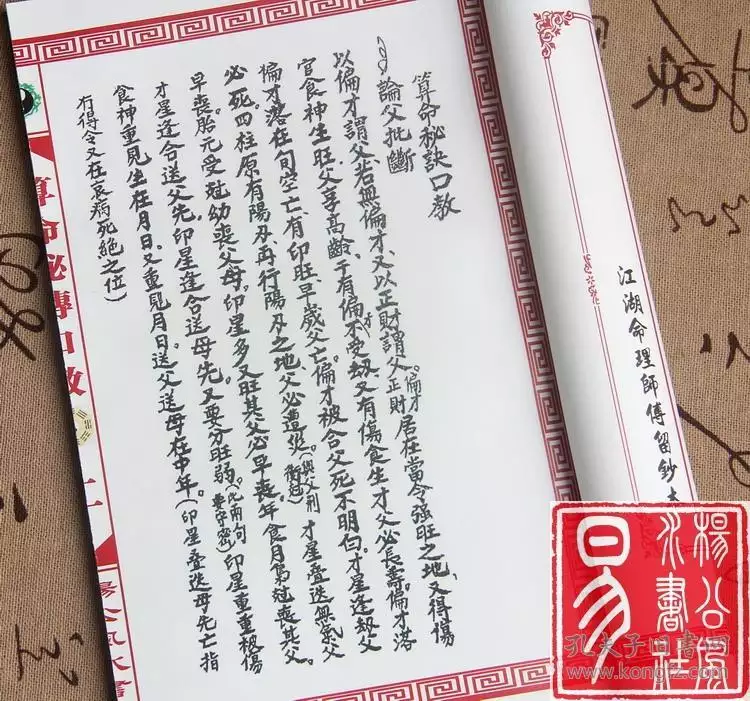 算命秘訣口教
論父批斷
以偏才謂父若無偏才又以正財謂父偏才正財居在當令強旺之地又得傷
官食神生旺父享高齡于有偏才不受刼又有傷食生才父必長壽偏才落
偏才落在旬空亡有印旺早歲父亡偏才被合父死不明白才星逢刼父
必死四柱原有陽刃再行陽刃之地父必遭災(與父刑衝尅)才星疊迭無氣父
早喪胎元受尅幼喪父母印星多又旺其父必早喪年食月梟尅喪其父
才星逢合送父先印星逢合送母先又要分旺弱(此兩句要守密)印星重重被傷
食神重見生在月日又重見月日送父送母在中年(印星疊迭母先亡指
有得令又在衰病死絕之位)
江湖命理師傅留鈔本
算命秘傳口教
楊公風水書
楊公風水書社
易
孔夫子旧書网
www.kongfz.com